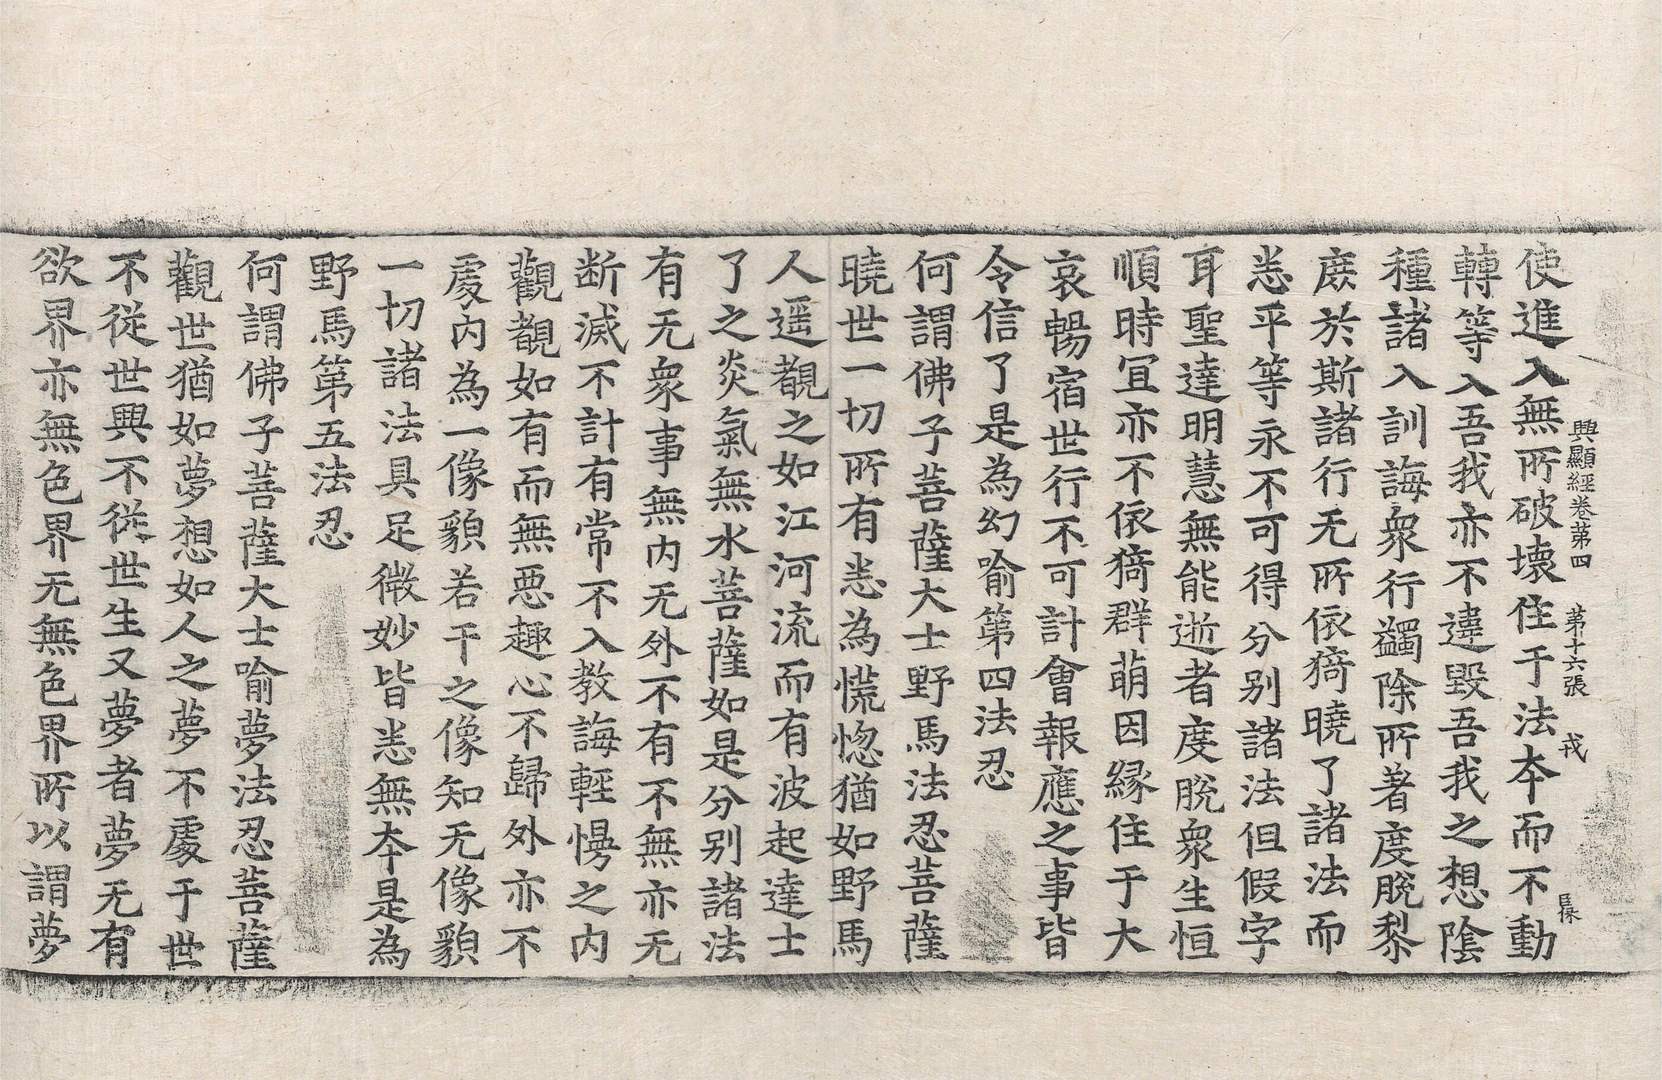 興顯經卷第四 第十六張 戎
使進入無所破壞住于法夲而不動
轉等入吾我亦不違毀吾我之想陰
種諸入訓誨衆行蠲除所著度脫黎
庶於斯諸行无所依猗曉了諸法而
悉平等永不可得分別諸法但假字
耳聖達明慧無能逝者度脫衆生恒
順時宜亦不依猗群萌因緣住于大
哀暢宿世行不可計會報應之事皆
令信了是為幻喻第四法忍
何謂佛子菩薩大士野馬法忍菩薩
曉世一切所有悉為慌惚猶如野馬
人遥覩之如江河流而有波起達士
了之炎氣無水菩薩如是分別諸法
有无衆事無内无外不有不無亦无
断滅不計有常不入教誨輕慢之内
觀覩如有而無惡趣心不歸外亦不
處内為一像貌若干之像知无像貌
一切諸法具足微妙皆悉無夲是為
野馬第五法忍
何謂佛子菩薩大士喻夢法忍菩薩
觀世猶如夢想如人之夢不處于世
不從世興不從世生又夢者夢无有
欲界亦無色界无無色界所以謂夢